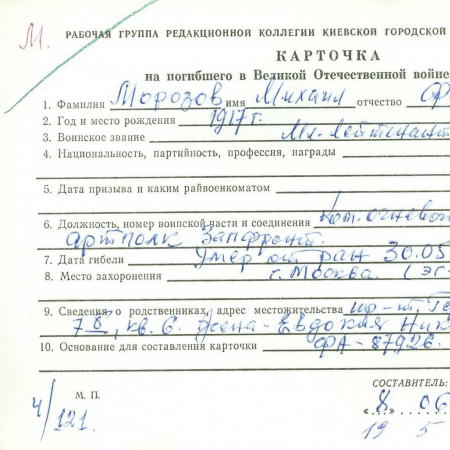 М.
РАБОЧАЯ ГРУППА РЕДАКЦИОННОЙ КОЛЛЕГИИ КИЕВСКОЙ ГОРОДСКОЙ
КАРТОЧКА
на погибшего в Великой Отечественной войне
1. Фамилия Морозов имя Михаил отчество
2. Год и место рождения 1917 г.
3. Воинское звание Мл. Лейтенант
4. Национальность, партийность, профессия, награды
5. Дата призыва и каким райвоенкоматом
6. Должность, номер воинской части и соединения Ком. огневог
артполк Запфронт.
7. Дата гибели Умер от ран 30.05
8. Место захоронения г. Москва. (эг-
9. Сведения о родственниках, адрес местожительства
7 8, кв. 6. Жена - Евдокия Ник
10. Основание для составления карточки ФА - 87926.
СОСТАВИТЕЛЬ:
М. П.
4/121.
„8" 06
19 5